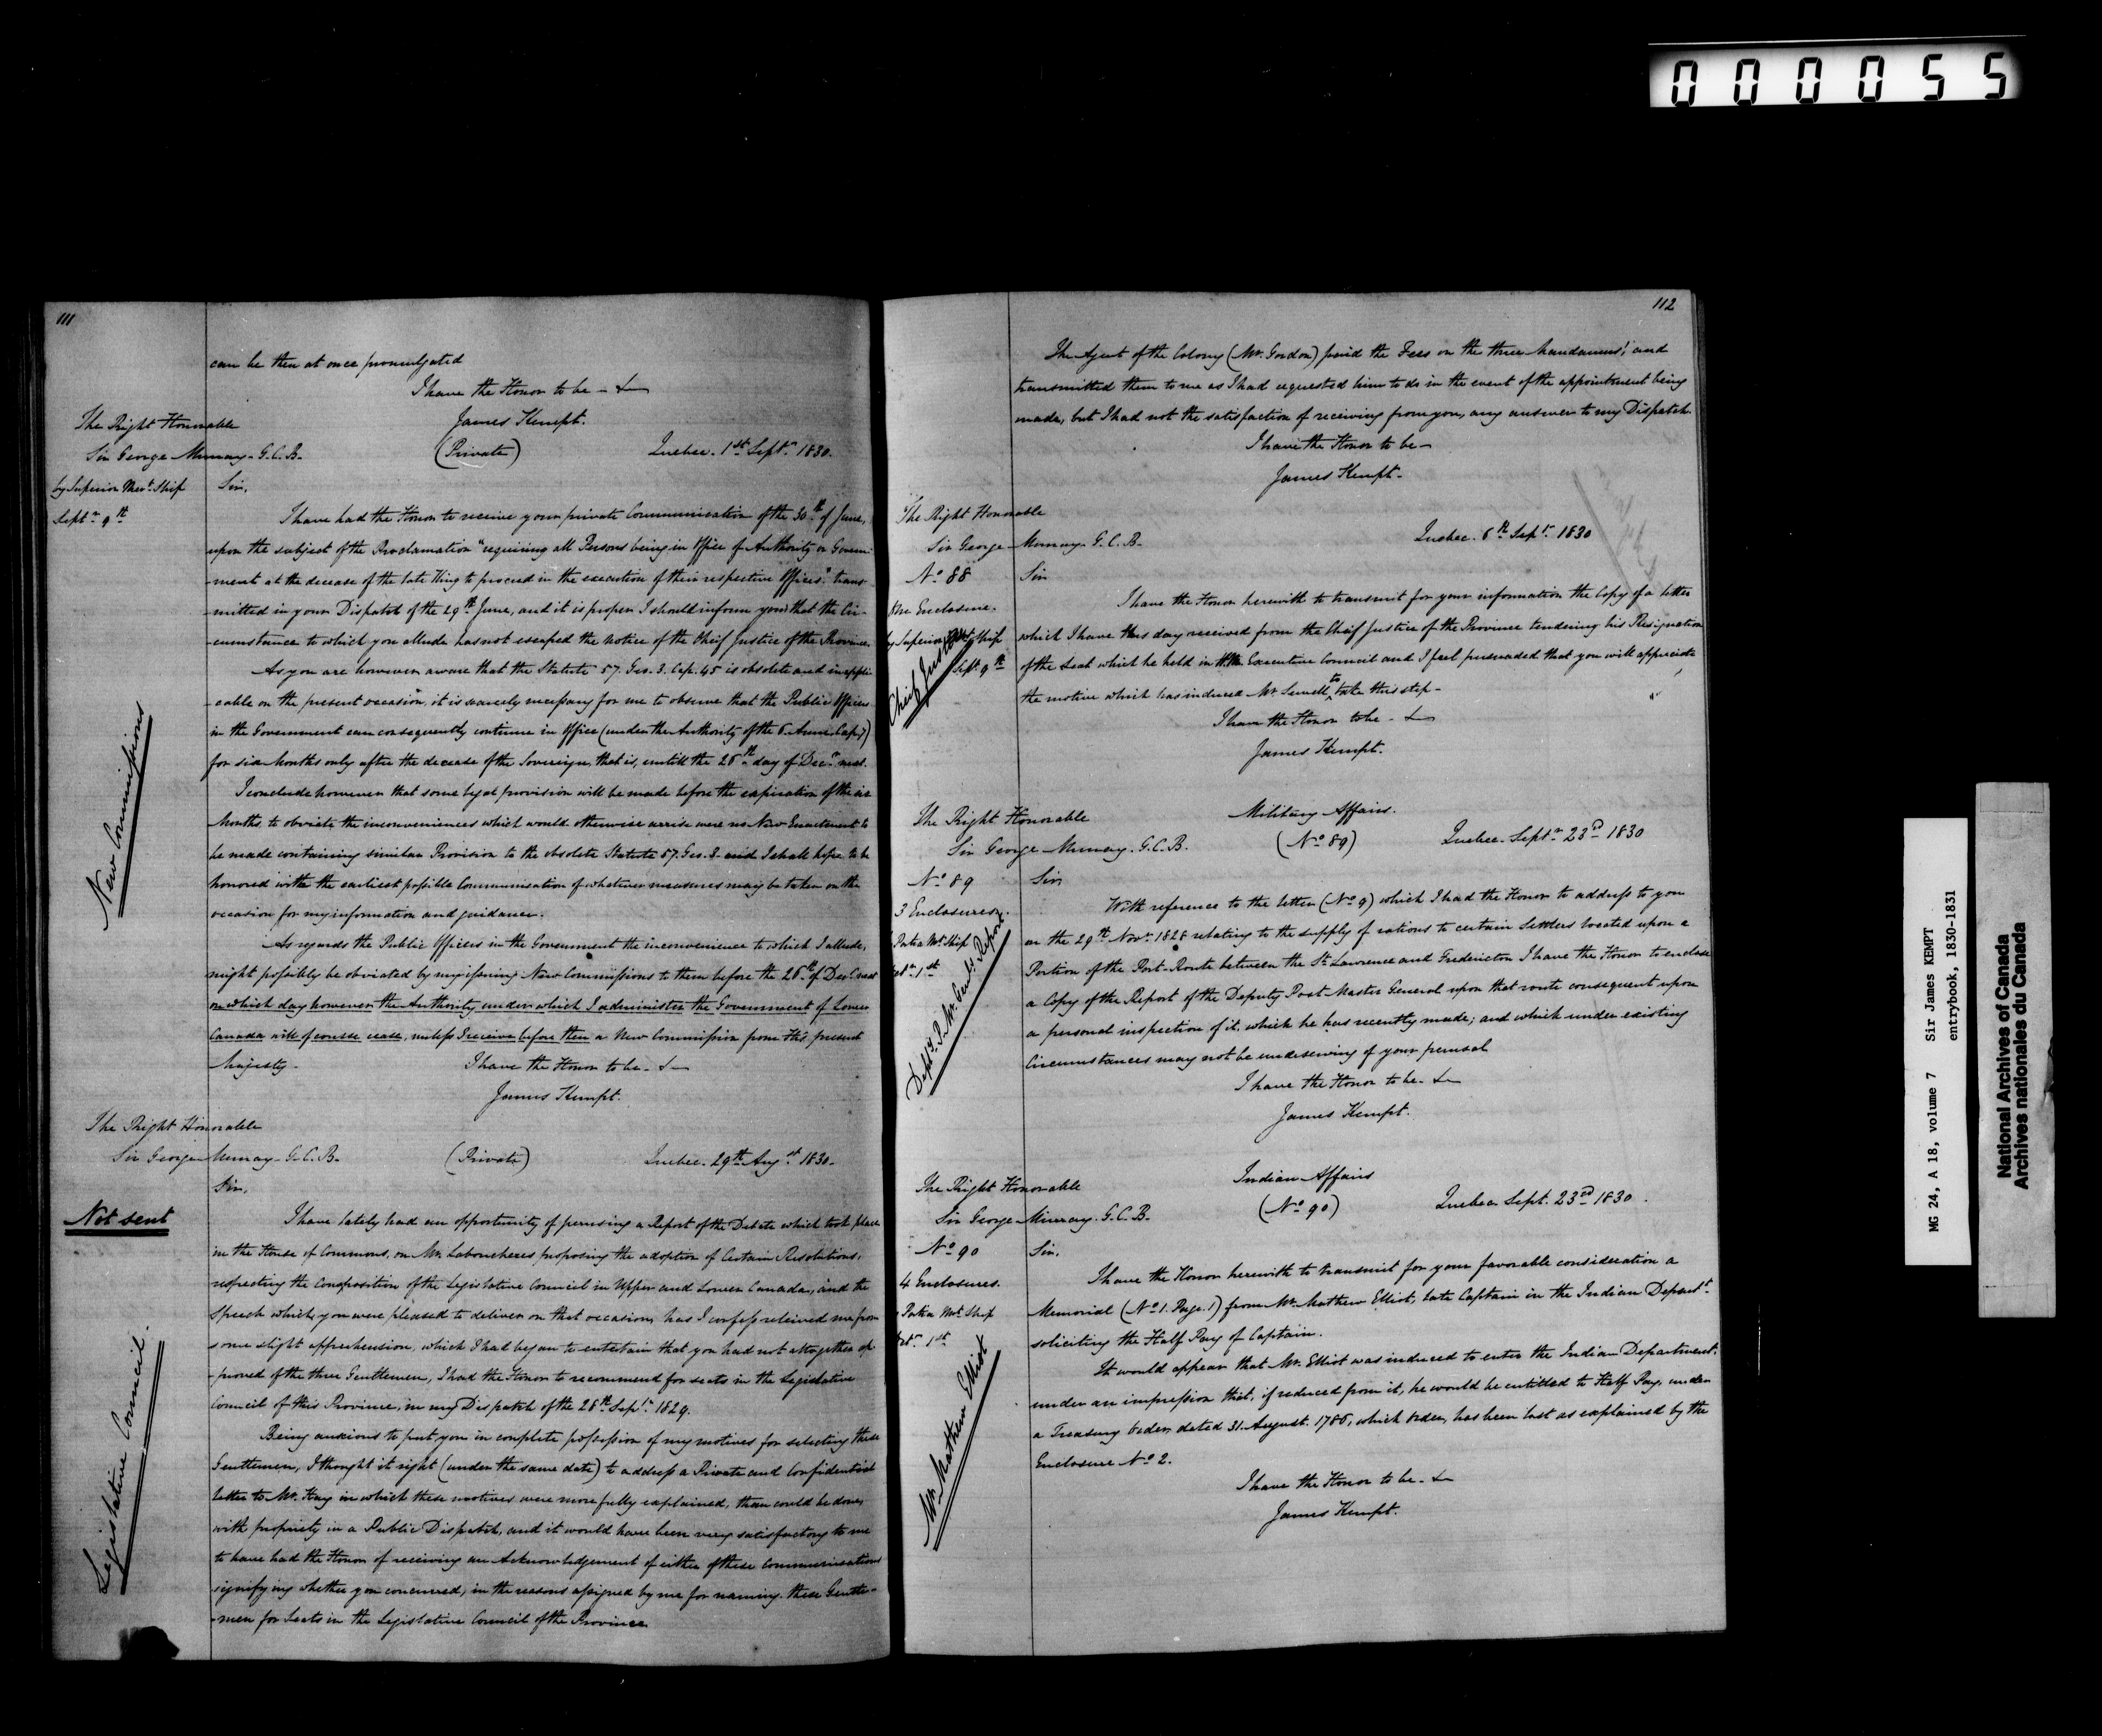 000055
111
can be then at once promulgated
I have the Honor to be - &
James Kempt.
The Right Honorable
Sir George Murray - G.C.B.
(Private)
Quebec. 1st Septr 1830.
by Superior Mert. Ship
Septr 9th
Sir,
I have had the Honor to receive your private Communication of the 30th of June,
upon the subject of the Proclamation "requiring all Persons being in Office of Authority or Govern-
-ment at the decease of the late King to proceed in the execution of their respective Offices" trans-
-mitted in your Dispatch of the 29th June, and it is proper I should inform you that the Cir-
-cumstance to which you allude has not escaped the notice of the Chief Justice of the Province.
As you are however aware that the Statute 57. Geo. 3. Cap. 45 is obsolete and inappli-
-cable on the present occasion, it is scarcely necessary for me to observe that the Public Officers
in the Government can consequently continue in Office (under the Authority of the 6. Anne Cap. 7)
for six Months only after the decease of the Sovereign, that is, untill the 26th day of Decr next.
I conclude however that some legal provision will be made before the expiration of the six
Months, to obviate the inconveniences which would otherwise arrise were no New Enactment to
be made containing similar Provision to the obsolete Statute 57. Geo. 3. and I shall hope to be
honored with the earliest possible Communication of whatever measures may be taken on the
occasion for my information and guidance.
New Commissions
As regards the Public Officers in the Government the inconvenience to which I allude,
might possibly be obviated by my issuing New Commissions to them before the 26th of Decr next
on which day however the Authority under which I administer the Government of Lower
Canada will of course cease, unless I receive before then a New Commission from His present
Majesty.
I have the Honor to be - &
James Kempt.
The Right Honorable
Sir George Murray - G.C.B.
(Private)
Quebec. 29th Augst 1830.
Sir,
Not sent
I have lately had an opportunity of perusing a Report of the Debate which took place
in the House of Commons, on Mr. Laboucheres proposing the adoption of Certain Resolutions,
respecting the Composition of the Legislative Council in Upper and Lower Canada, and the
Speech which, you were pleased to deliver on that occasion, has I confess relieved me from
some slight apprehension, which I had began to entertain that you had not altogether ap-
-proved of the three Gentlemen, I had the Honor to recommend for seats in the Legislative
Council of this Province, in my Dispatch of the 28th Septr 1829.
Legislative Council.
Being anxious to put you in complete possession of my motives for selecting these
Gentlemen, I thought it right (under the same date) to address a Private and Confidential
letter to Mr. Hay in which these motives were more fully explained, than could be done,
with propriety in a Public Dispatch, and it would have been very satisfactory to me
to have had the Honor of receiving an Acknowledgement of either of these Communications
signifying whether you concurred, in the reasons assigned by me for naming these Gentle-
-men for Seats in the Legislative Council of the Province
112
The Agent of the Colony (Mr. Gordon) paid the Fees on the three Mandamus', and
transmitted them to me as I had requested him to do in the event of the appointment being
made, but I had not the satisfaction of receiving from you, any answer to my Dispatch.
I have the Honor to be -
James Kempt.
The Right Honorable
Sir George Murray G.C.B.
Quebec. 6th Septr 1830
No. 88
Sir
One Enclosure.
by Superior Mert. Ship
Septr 9th
Chief Justice
I have the Honor herewith to transmit for your information the Copy of a letter
which I have this day received from the Chief Justice of the Province tendering his Resignation
of the Seat which he held in the Executive Council and I feel persuaded that you will appreciate
the motive which has induced Mr. Sewell to take this step -
I have the Honor to be - &
James Kempt.
Military Affairs.
The Right Honorable
Sir George Murray. G.C.B.
(No. 89)
Quebec. Septr 23d 1830
No. 89
Sir
3 Enclosures.
Patria Mt. Ship
Octr 1st
Depty. P. Mr. Genls Report
With reference to the letter (No. 9) which I had the Honor to address to you
on the 29th Novr 1828 relating to the supply of rations to certain Settlers located upon a
Portion of the Post-Route between the St. Lawrence and Fredericton I have the Honor to enclose
a Copy of the Report of the Deputy Post Master General upon that route consequent upon
a personal inspection of it, which he has recently made; and which under existing
Circumstances may not be undeserving of your perusal
I have the Honor to be - &
James Kempt.
Indian Affairs
The Right Honorable
Sir George Murray. G.C.B.
(No. 90)
Quebec Sept. 23rd 1830.
No. 90
Sir.
4 Enclosures.
Patria Mt. Ship
Octr 1st
Mr. Mathew Elliot
I have the Honor herewith to transmit for your favorable consideration a
Memorial (No. 1. Page. 1) from Mr. Mathew Elliot, late Captain in the Indian Departt.
soliciting the Half Pay of Captain.
It would appear that Mr. Elliot was induced to enter the Indian Department.
under an impression that, if reduced from it, he would be entitled to Half Pay, under
a Treasury Order dated 31. August. 1786, which Order, has been lost as explained by the
Enclosure No. 2.
I have the Honor to be - &
James Kempt.
MG 24, A 18, volume 7 Sir James KEMPT
entrybook, 1830-1831
National Archives of Canada
Archives nationales du Canada